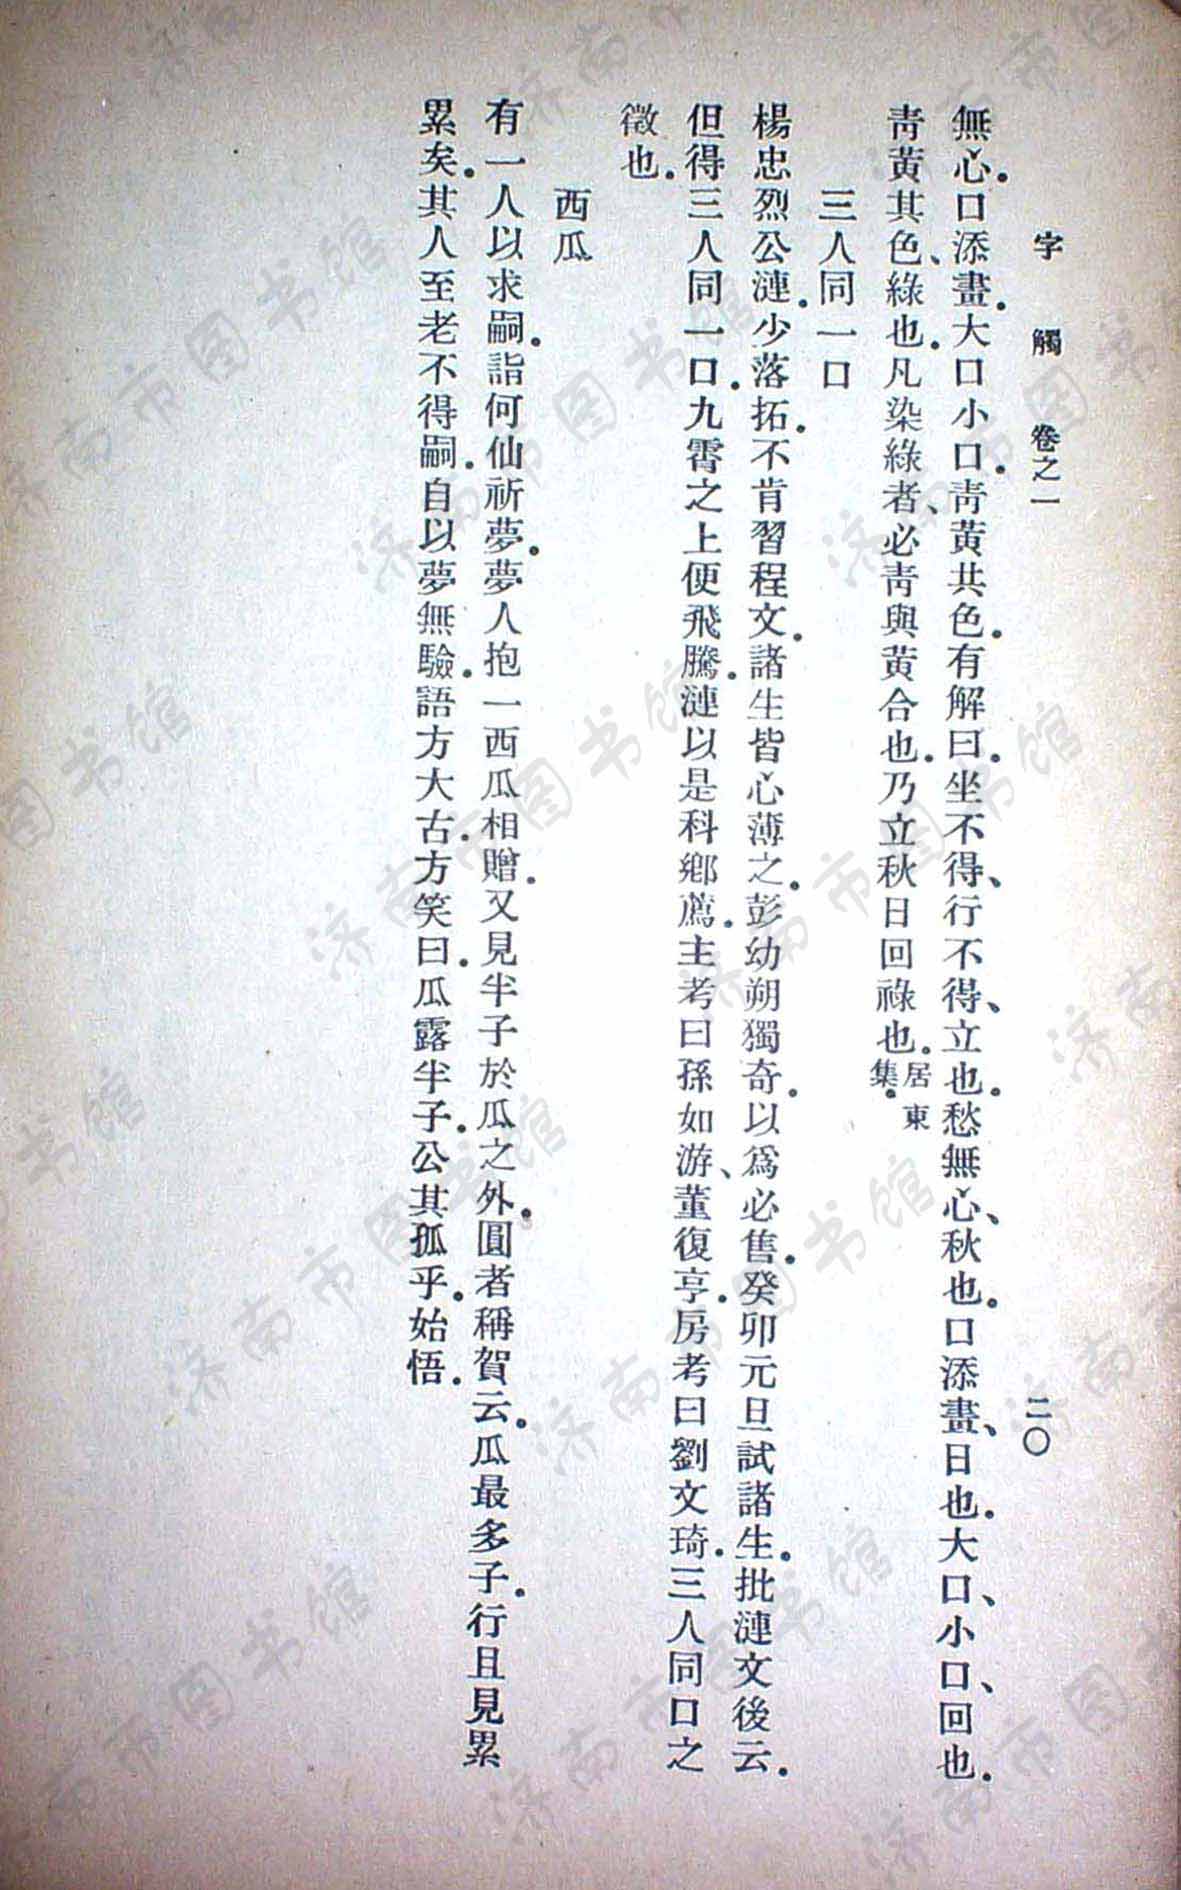 字觸 卷之一 二〇
無心。口添畫。大口小口。靑黃共色。有解曰。坐不得、行不得、立也。愁無心、秋也。口添畫、日也。大口、小口、回也。
靑黃其色、綠也。凡染綠者、必靑與黃合也。乃立秋日回祿也。居東集。
三人同一口
楊忠烈公漣。少落拓。不肯習程文。諸生皆心薄之。彭幼朔獨奇。以爲必售。癸卯元旦試諸生。批漣文後云。
但得三人同一口。九霄之上便飛騰。漣以是科鄕薦。主考曰孫如游、董復亨。房考曰劉文琦。三人同口之
徵也。
西瓜
有一人以求嗣。詣何仙祈夢。夢人抱一西瓜相贈。又見半子於瓜之外。圓者稱賀云。瓜最多子。行且見累
累矣。其人至老不得嗣。自以夢無驗。語方大古。方笑曰。瓜露半子。公其孤乎。始悟。
济南市图书馆